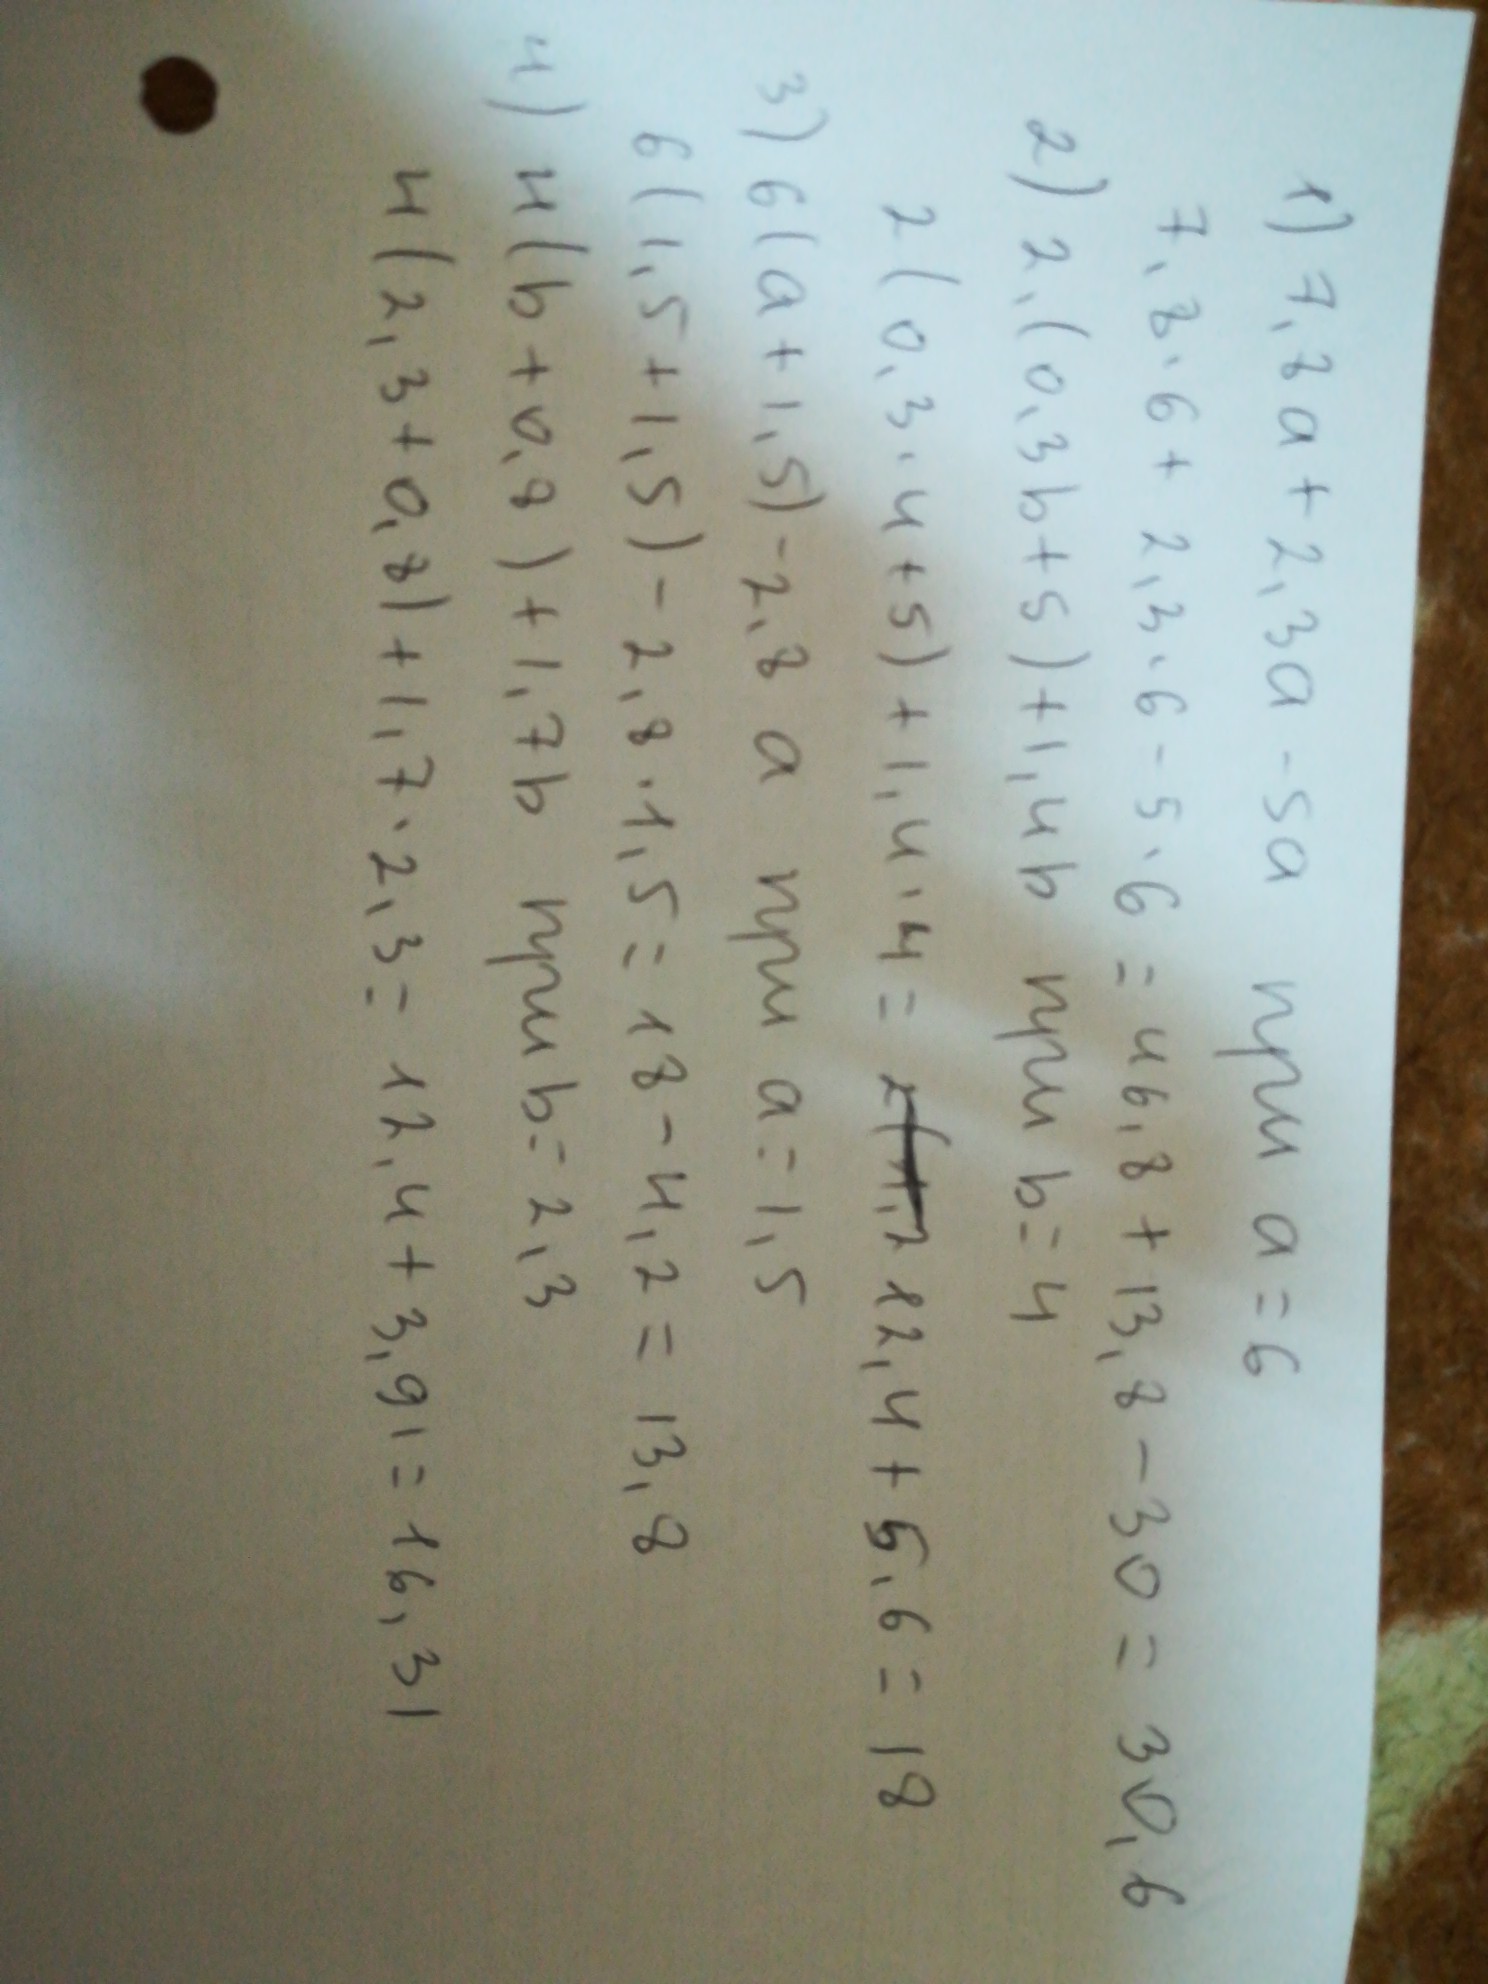 1) 7,8a + 2,3a - 5a при a = 6
7,8·6 + 2,3·6 - 5·6 = 46,8 + 13,8 - 30 = 30,6
2) 2,(0,3b+5)+1,4b при b=4
2(0,3·4+5)+1,4·4= 12,4+5,6=18
3) 6(a+1,5)-2,8a при a=1,5
6(1,5+1,5)-2,8·1,5=18-4,2=13,8
4) 4(b+0,8)+1,7b при b=2,3
4(2,3+0,8)+1,7·2,3= 12,4+3,91=16,31